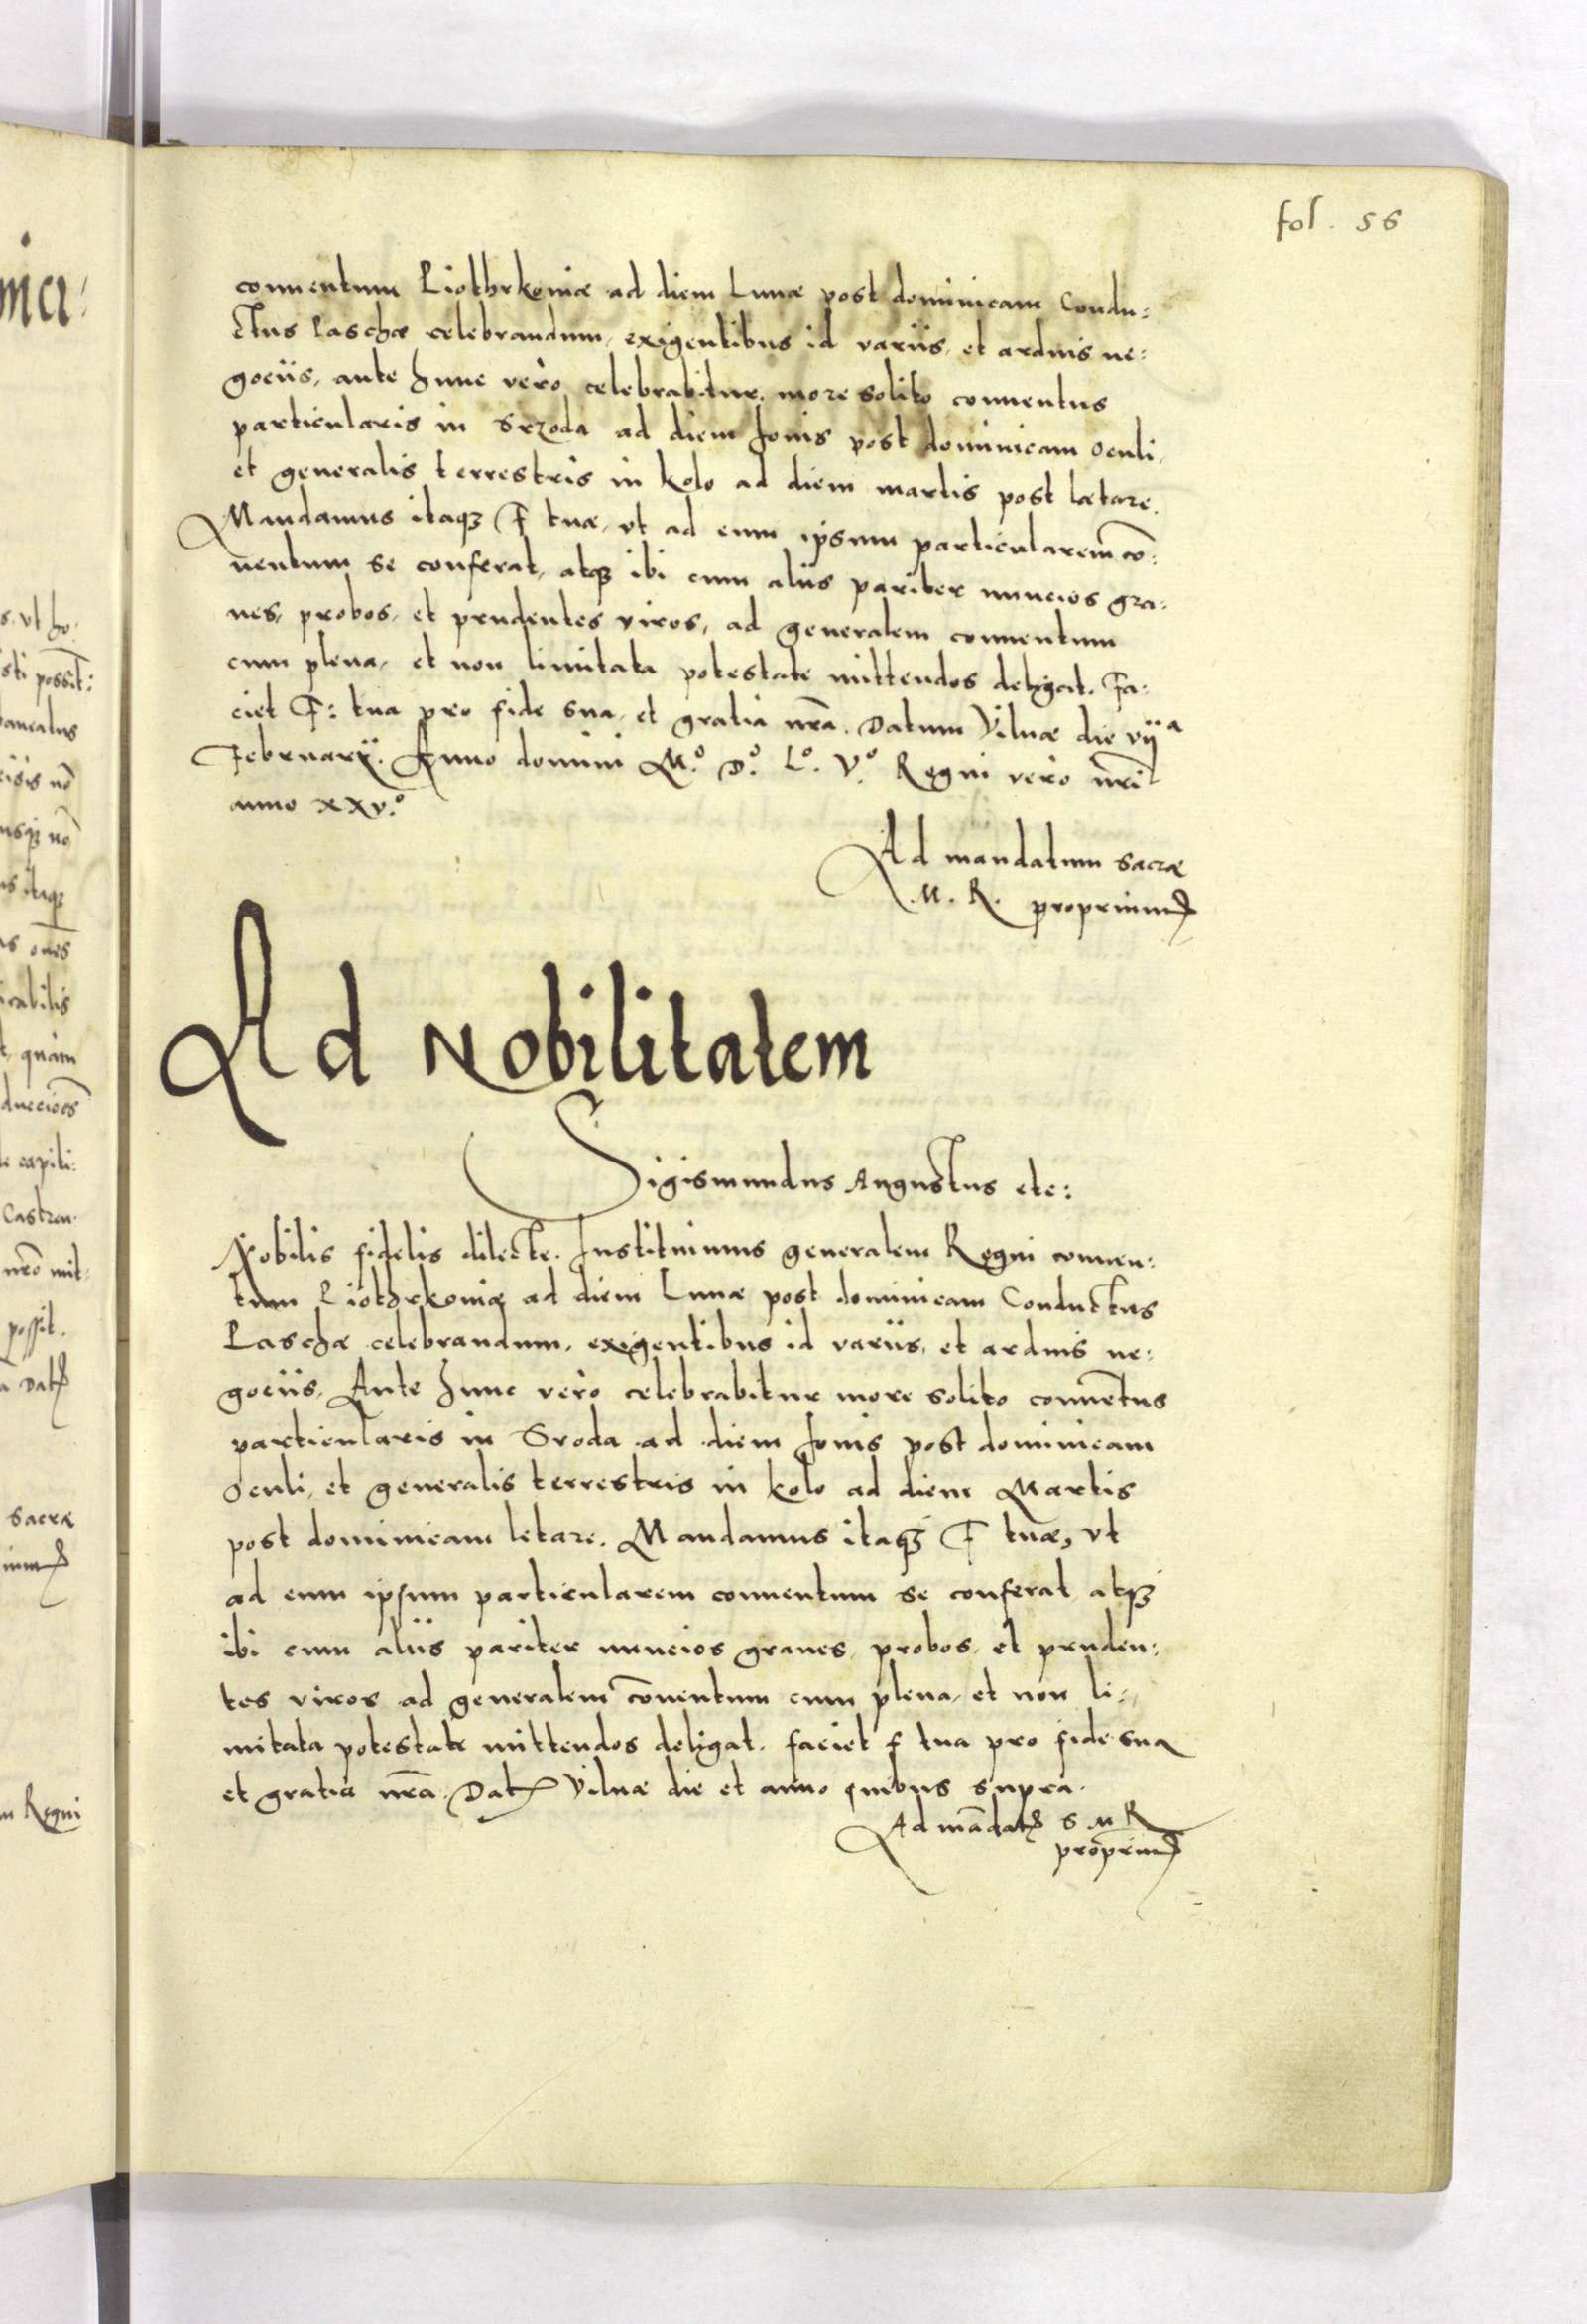 fol. 56
conuentum Piothrkoniæ ad diem Lunæ post dominicam Condu:
ctus Paschæ celebrandum, exigentibus id variis, et arduis ne:
gociis, ante hunc verò celebrabitur more solito conuentus
particularis in Srzoda ad diem Jouis post dominicam Oculi,
et generalis terrestris in Kolo ad diem martis post lætare.
Mandamus itaqȝ F tuæ, vt ad eum ipsum particularem cō:
uentum se conferat, atqȝ ibi cum aliis pariter nuncios gra:
ues, probos, et prudentes viros, ad generalem conuentum
cum plena, et non limitata potestate mittendos deligat. Fa:
ciet F: tua pro fide sua, et gratia nr̄a. Datum Vilnæ die vijª
Februarij. Anno domini Mº. Dº. Lº. Vº. Regni vero nr̄i
anno xxvº.
Ad mandatum sacræ
M. R. proprium
Ad Nobilitatem
Sigismundus Augustus etc:
Nobilis fidelis dilecte. Instituimus generalem Regni conuen:
tum Piothrkoniæ ad diem Lunæ post dominicam Conductus
Paschæ celebrandum, exigentibus id variis, et arduis ne:
gociis, Ante hunc verò celebrabitur more solito conuētus
particularis in Sroda ad diem Jouis post dominicam
Oculi, et generalis terrestris in Kolo ad diem Martis
post dominicam letare. Mandamus itaqȝ F tuæ, vt
ad eum ipsum particularem conuentum se conferat atqȝ
ibi cum aliis pariter nuncios graues, probos, et pruden:
tes viros ad generalem cōuentum cum plena, et non li:
mitata potestate mittendos deligat. faciet f tua pro fide sua
et gratia nr̄a. Dat Vilnæ die et anno quibus supra.
Ad mādat S M R
proprium